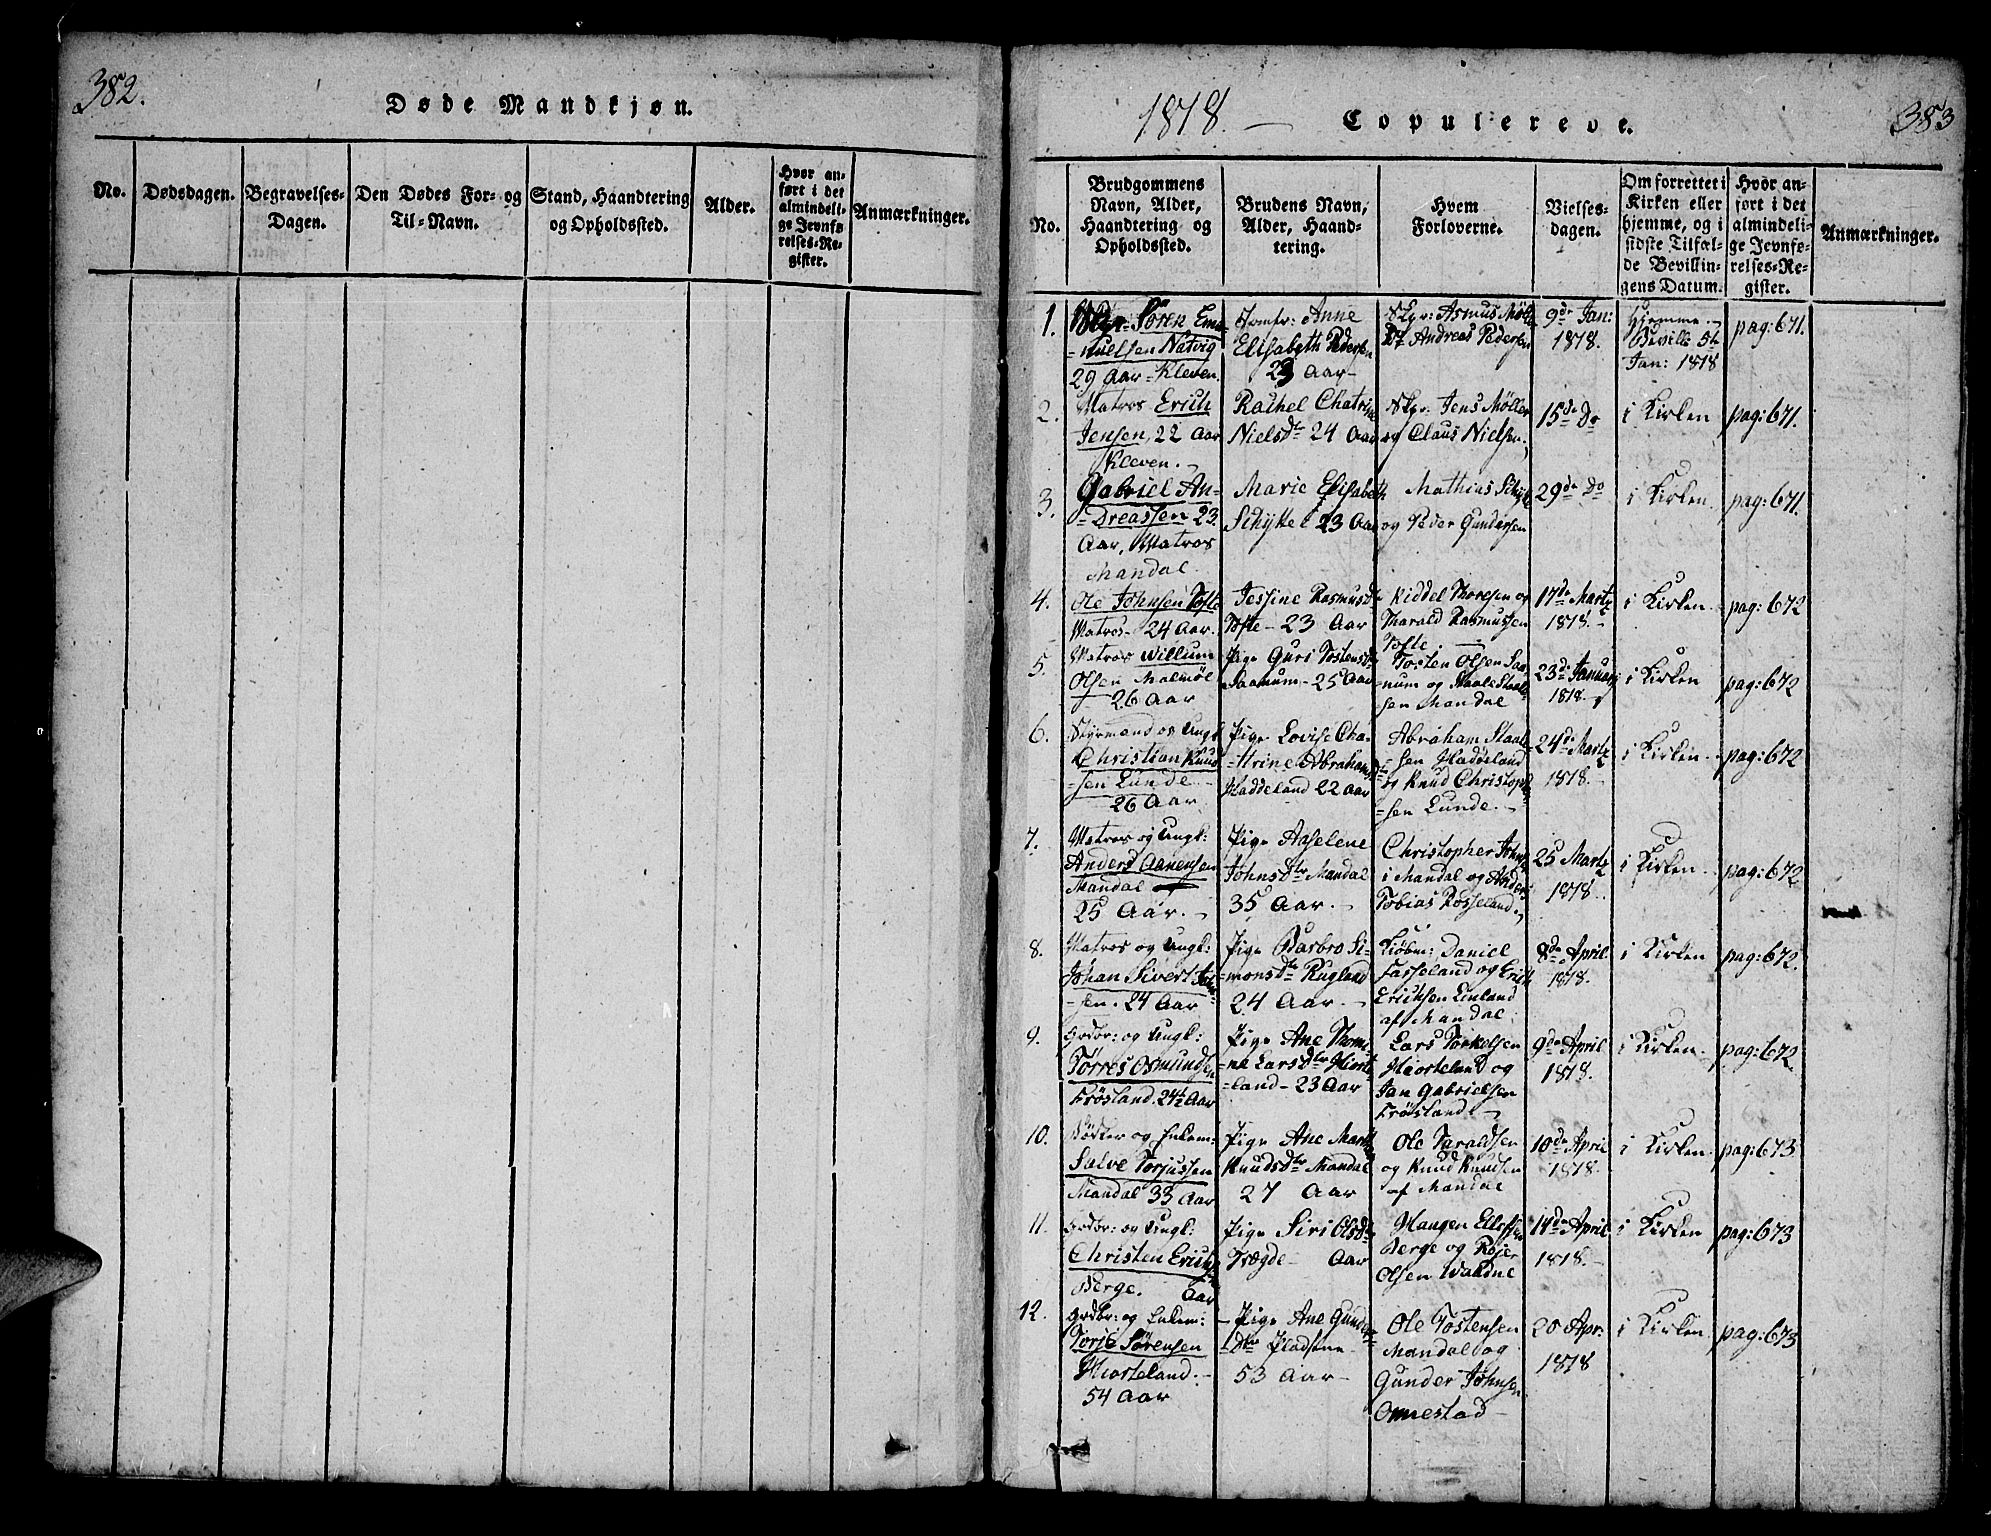 382.
Døde Mandkjøn.
No.
Dødsdagen.
Begravelses-
Dagen.
Den Dødes For- og
Til-Navn.
Stand, Haandtering
og Opholdssted.
Alder.
Hvor an-
ført i det
almindeli-
ge Jevnfø-
relses-Re-
gister.
Anmærkninger.
1818. —
Copulereve.
383
No.
Brudgommens
Navn, Alder,
Haandtering og
Opholdssted.
Brudens Navn,
Alder, Haand-
tering.
Hvem
Forloverne.
Vielses-
dagen.
Om forrettet i
Kirken eller
hjemme, og i
sidste Tilfæl-
de Bevillin-
gens Datum.
Hvor an-
ført i det
almindeli-
ge Jevnfø-
relses-Re-
gister.
Anmærkninger.
1.
Søren Ema-
=nuelsen Natvig
29 Aar = Kleven.
Jomfr: Anne
Elisabeth Pedersen
23 Aar —
Skpr: Asmus Møller
Andreas Pedersen
9de Jan:
1818.
Hjemme.
Bevill: 5te
Jan: 1818
pag: 671.
2.
Matros Erich
Jensen, 22 Aar
Kleven. —
Rachel Chatrine
Nielsdtr 24 Aar
Skpr: Jens Møller
og Claus Nielsen,
15de Do
i Kirken
pag: 671.
3.
Gabriel An=
=dreassen 23
Aar, Matros
Mandal.
Marie Elisabeth
23 Aar
Mathias
og Peder Gundersen
29de Do
i Kirken.
pag: 671.
4.
Ole Johnsen Tofte
Matros - 24 Aar.
Jessine Rasmusdtr
Tofte - 23 Aar
Kiddel Thoresen og
Tharald Rasmussen
Tofte. —
17de Martz
1818. -
i Kirken.
pag: 672
5.
Matros Willum
Olsen Malmøe
26 Aar
Pige Guri Tostensdtr
Saanum - 25 Aar
Tosten Olsen Saa=
=num og Staale Staal=
sen Mandal
23de Januarj
1818. -
i Kirken
pag: 672
6.
Styrmand og Ungk:
Christian Knud
=sen Lunde
26 Aar
Pige Lovise Cha=
=trine Abrahamsdtr
Haddeland 22 Aar
Abraham Staal=
=sen
og Knud Christoph=
=sen Lunde. -
24de Martz
1818. -
i Kirken.
pag: 672
7.
Matros og Ungk:
Anders Aanensen
Mandal
25 Aar. -
Pige Aaselene
Johnsdtr Mandal
35 Aar. -
Christopher Johns
i Mandal og
Tobias Rosseland.
25 Martz
1818.
i Kirken.
pag: 672
8.
Matros og Ungk:
Johan Sivert
=sen. 24 Aar
Pige Barbro Si=
=monsdtr Rugland
24 Aar. -
Kiøbm: Daniel
Fasseland og Erich
Erichsen Linland
af Mandal.
8de April
1818.
i Kirken
pag: 672.
9.
Grdbr: og Ungk:
Tørres Osmundsen
Frøsland. 24½ Aar
Pige Ane Thom=
=ne Larsdtr Hiorte
=land - 23 Aar
Lars Torkelsen
Hiorteland og
Jan Gabrielsen
Frøisland. -
9de April
1818.
i Kirken.
pag: 672.
10.
Bødker og Enkem:
Salve Torjussen
Mandal 33 Aar
Pige Ane Marthe
Knudsdtr Mandal
27 Aar
Ole Taraldsen
og Knud Knudsen
af Mandal
10de April
1818.
i Kirken.
pag: 673
11.
Grdbr: og Ungk:
Christen Erichs
Berge. Aar
Pige Siri Olsdtr
Trægde - Aar
Haagen Ellefsen
Berge og
Olsen
14de April
1818. -
i Kirken
pag: 673
12.
Grdbr: og Enkem:
Torje Sørensen
Hiorteland. -
54 Aar
Pige Ane Gunder
=dtr
53 Aar -
Ole Tostensen
Mandal og
Gunder Johnsen
Omestad -
20 Apr:
1818
i Kirken.
pag: 673